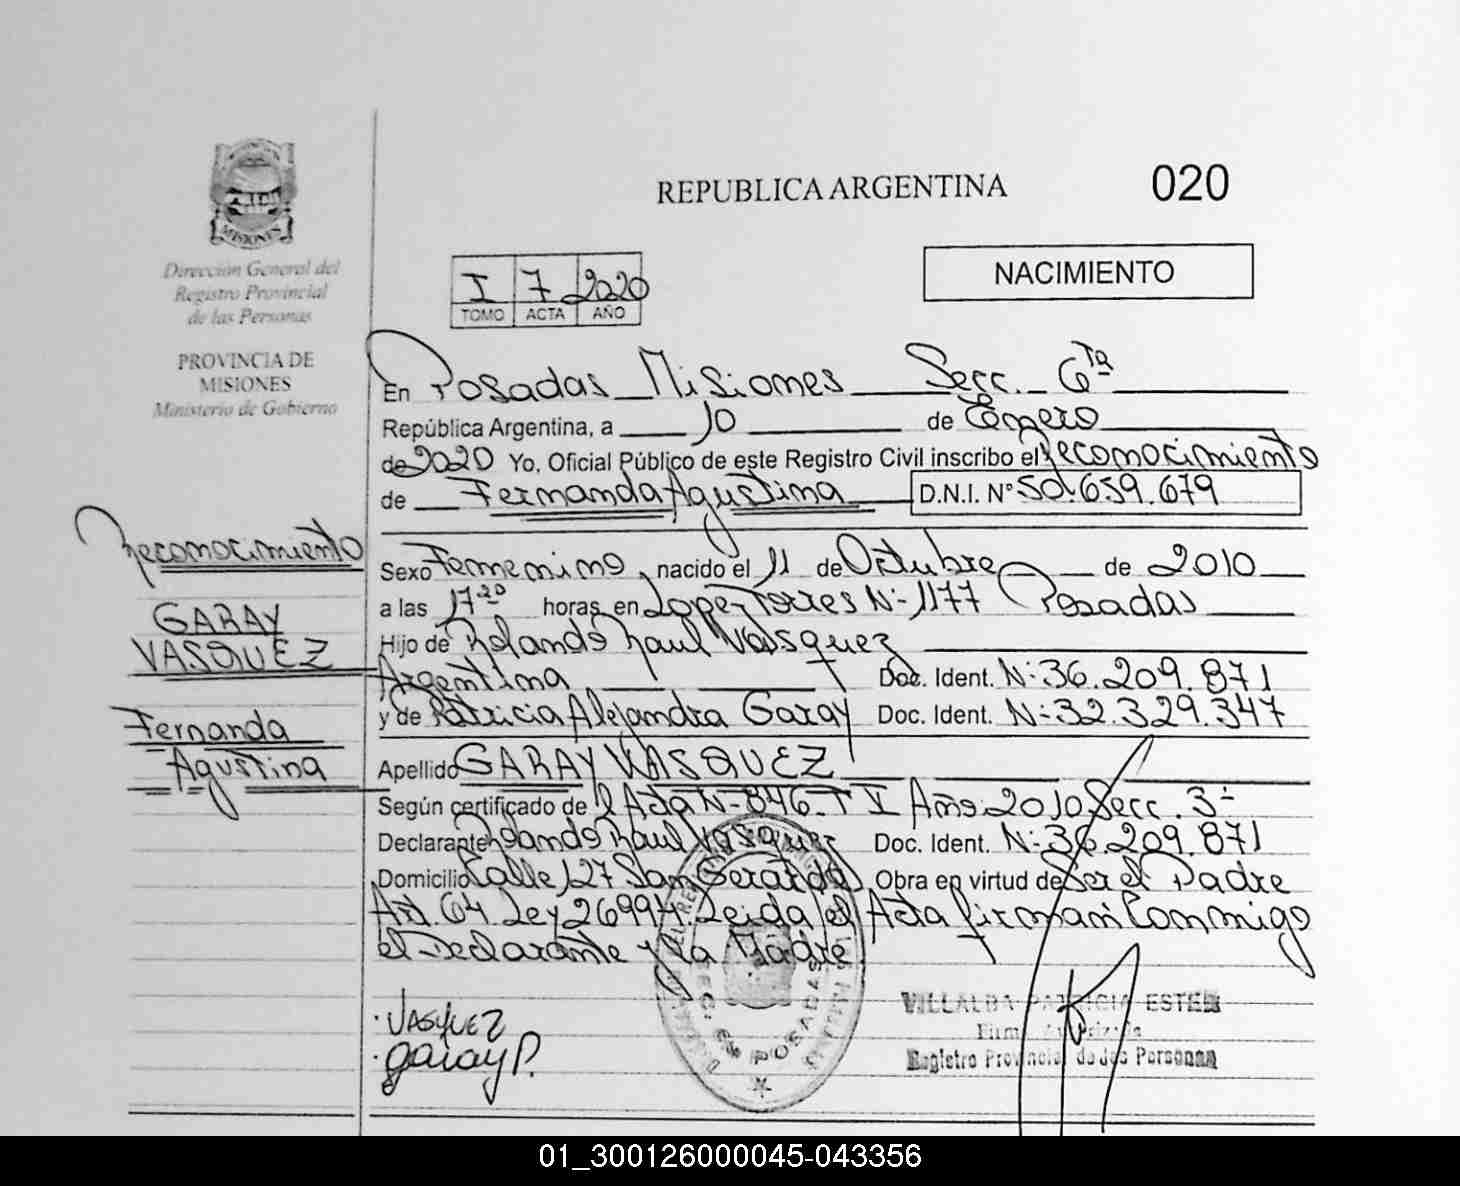 REPUBLICA ARGENTINA
020
MISIONES
Dirección General del
Registro Provincial
de las Personas
PROVINCIA DE
MISIONES
Ministerio de Gobierno
I 7 2020
TOMO ACTA AÑO
NACIMIENTO
En Posadas Misiones Secc. 6ta
República Argentina, a 10 de Enero
de 2020 Yo, Oficial Público de este Registro Civil inscribo el Reconocimiento
de Fernanda Agustina D.N.I. N° 50.659.679
Reconocimiento
GARAY
VASQUEZ
Fernanda
Agustina
Sexo Femenino, nacido el 11 de Octubre de 2010
a las 17 20 horas, en Lopez Torres N- 1177 Posadas
Hijo de Rolando Raul Vasquez
Argentina Doc. Ident. N: 36.209.871
y de Patricia Alejandra Garay Doc. Ident. N: 32.329.347
Apellido GARAY VASQUEZ
Según certificado de Acta N- 846 T V Año: 2010 Secc. 3-
Declarante Rolando Raul Vasquez Doc. Ident. N: 36.209.871
Domicilio Calle 127 San Gerardo Obra en virtud de Ser el Padre
Art. 64 Ley 26994. Leida el Acta firman Conmigo
el Declarante y La Madre
VASQUEZ
garay P.
SEC. 6ta POSADAS
VILLALBA PATRICIA ESTER
Firma Autorizada
Registro Provincial de las Personas
01_300126000045-043356